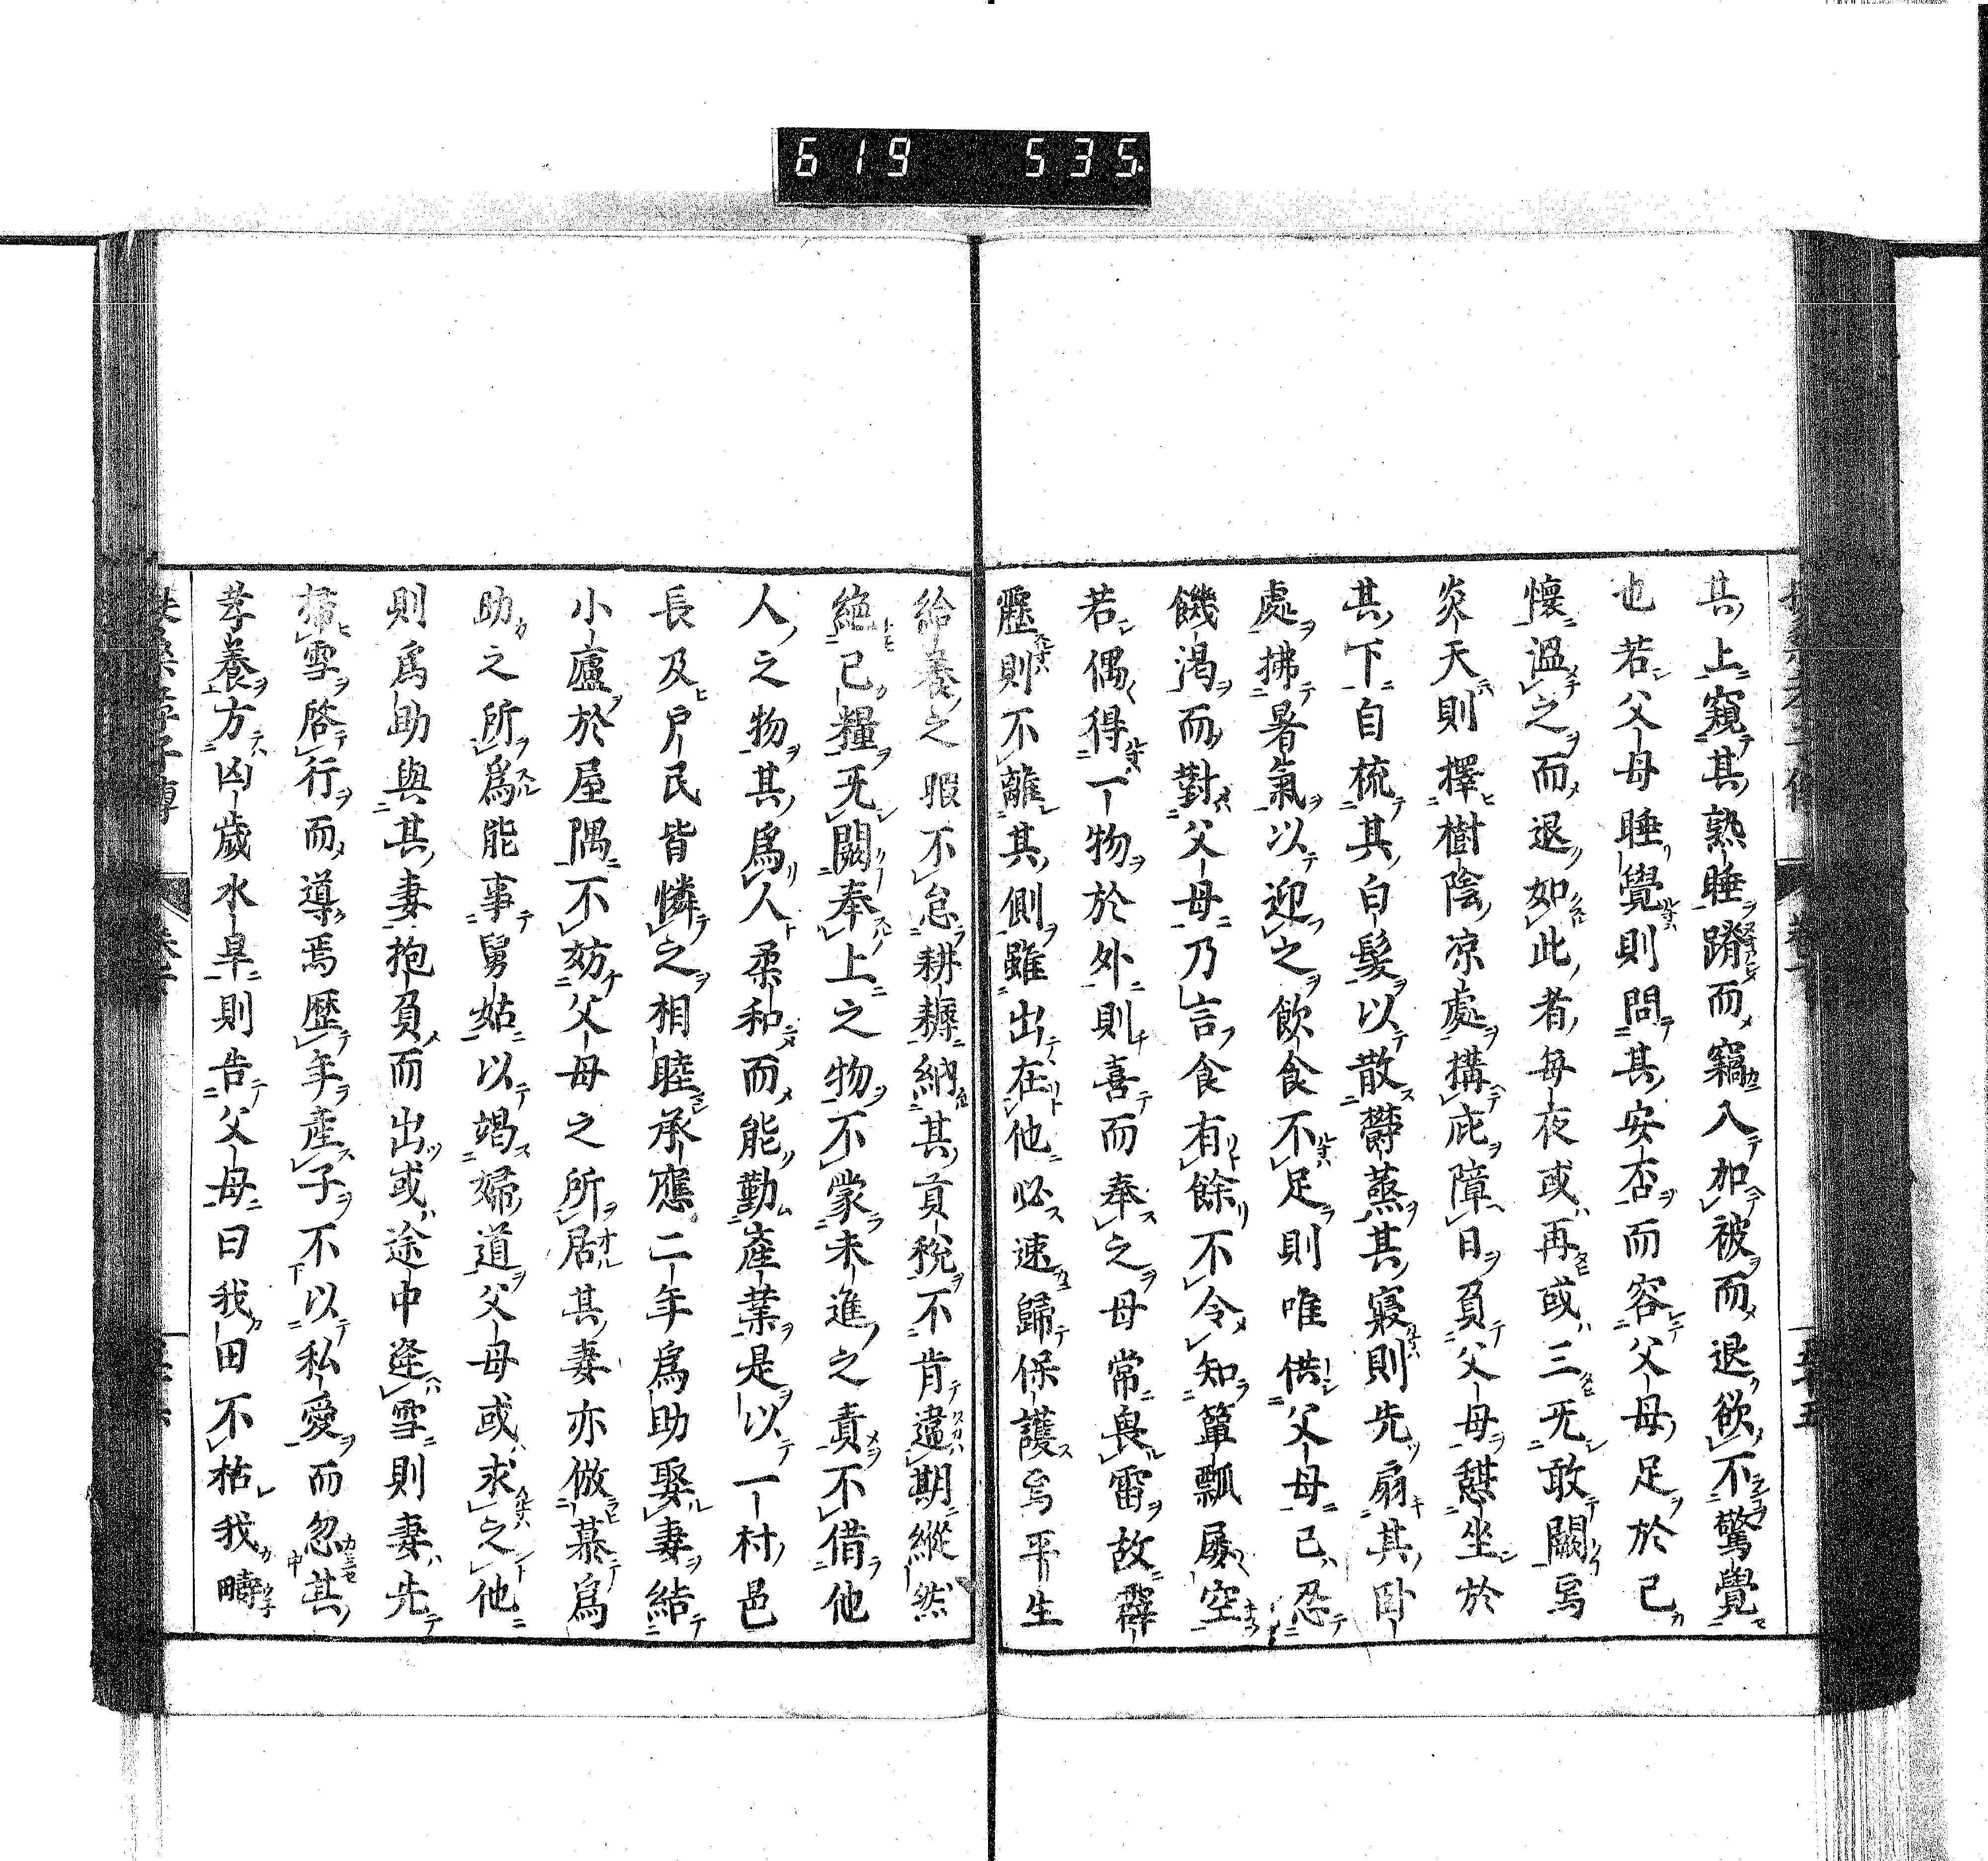 619 535
其上窺其熟睡蹐而竊入加被而退欲不驚覺
也若父母睡覺則問其安否而容父母足於己
懷溫之而退如此者每夜或再或三无敢闕焉
炎天則擇樹陰凉處搆庇障日負父母憇坐於
其下自梳其白髮以散欝蒸其寢則先扇其臥
處拂暑氣以迎之飲食不足則唯供父母己忍
饑渴而對父母乃言食有餘不令知簞瓢屢空
若偶得一物於外則喜而奉之母常畏雷故霹
靂則不離其側雖出在他必速歸保護焉平生
給養之暇不怠耕耨納其貢稅不肯違期縱然
絕己糧无闕奉上之物不蒙未進之責不借他
人之物其爲人柔和而能勤產業是以一村邑
長及戶民皆憐之相睦承應二年爲助娶妻結
小廬於屋隅不妨父母之所居其妻亦倣慕爲
助之所爲能事舅姑以竭婦道父母或求之他
則爲助與其妻抱負而出或途中逢雪則妻先
掃雪啓行而導焉歷年產子不以私愛而忽其
孝養方凶歲水旱則告父母曰我田不枯我疇